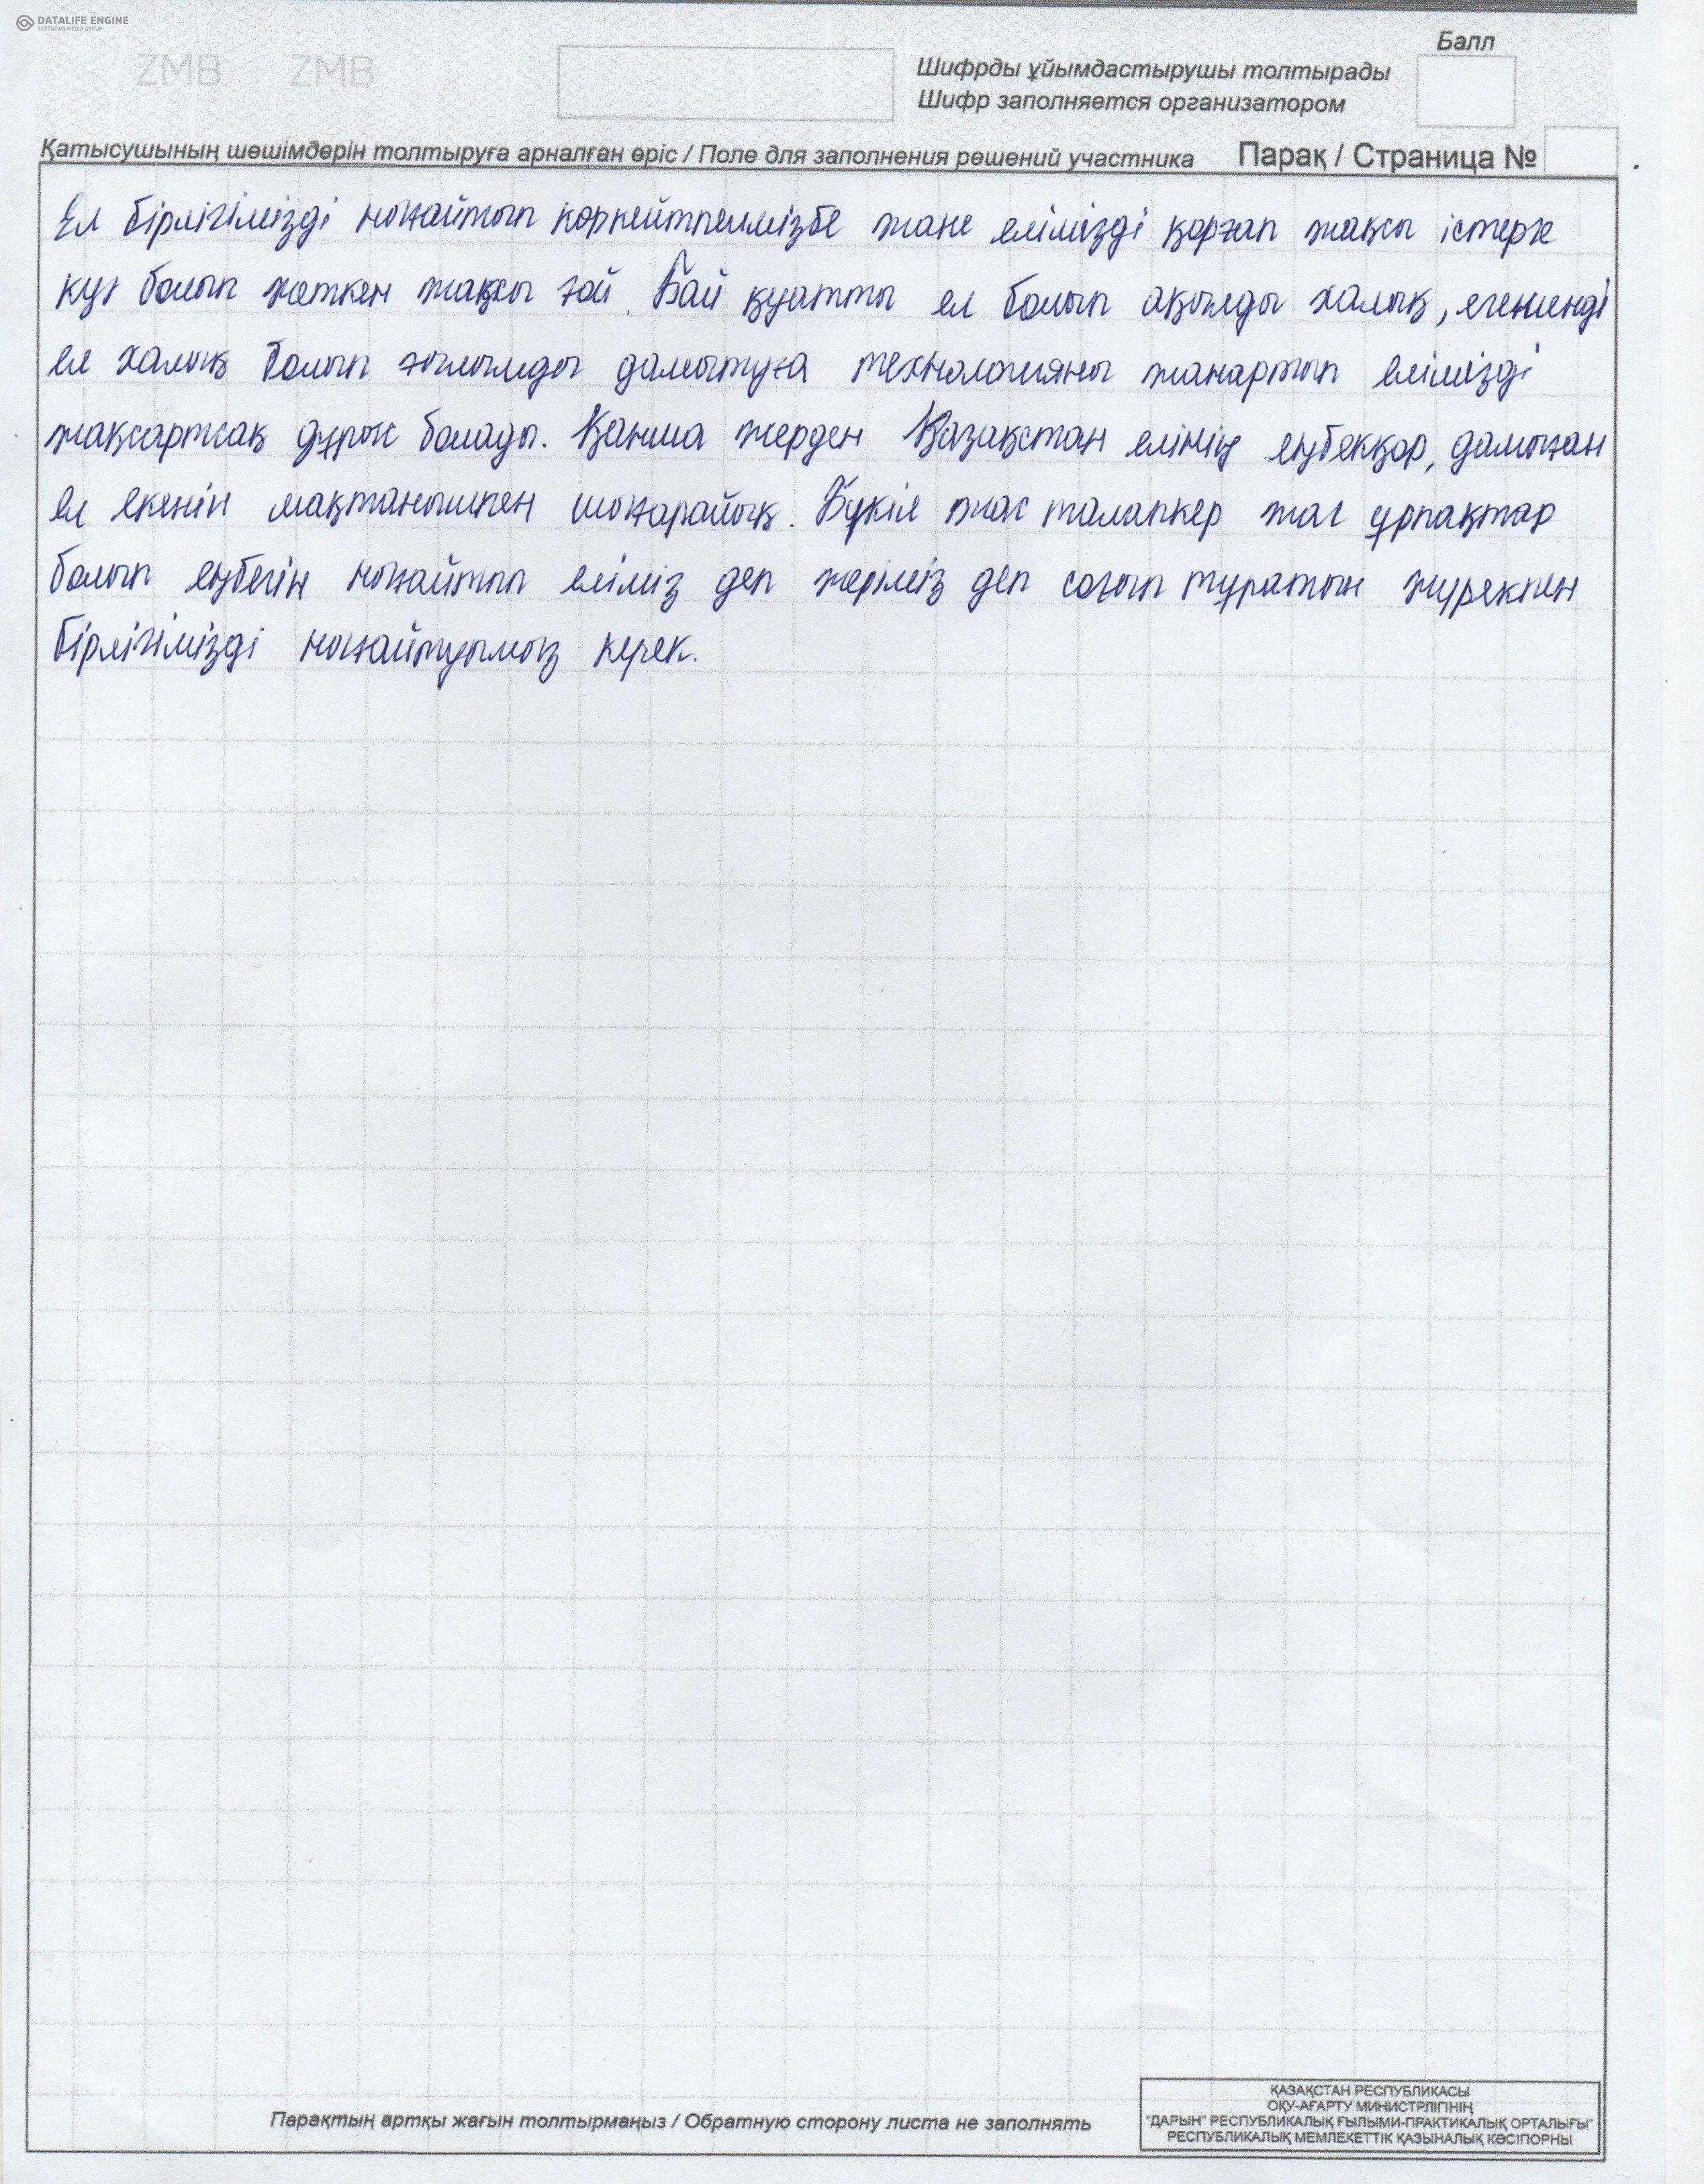 DATALIFE ENGINE
SOFTNEWS MEDIA GROUP
ZMB ZMB
Балл
Шифрды ұйымдастырушы толтырады
Шифр заполняется организатором
Қатысушының шешімдерін толтыруға арналған өріс / Поле для заполнения решений участника Парақ / Страница №
Ел бірлігімізді ноғайтып коркейтпеимізбе жане елімізді қорғап жақсы істерге
куә болып жеткен жақсы ғой. Бай қуатты ел болып ақылды халық, егеменді
ел халық болып ғылымды дамытуға технологияны жанартып елімізді
жақсартсақ дұрыс болады. Қанша жерден Қазақстан елінің еңбекқор, дамыған
ел екенін мақтанышпен шығарайық. Бүкіл жас талапкер жас ұрпақтар
болып еңбегін ноғайтып еліміз деп жеріміз деп соғып тұратын журекпен
бірлігімізді ноғайтуымыз керек.
Парақтың артқы жағын толтырмаңыз / Обратную сторону листа не заполнять
ҚАЗАҚСТАН РЕСПУБЛИКАСЫ
ОҚУ-АҒАРТУ МИНИСТРЛІГІНІҢ
"ДАРЫН" РЕСПУБЛИКАЛЫҚ ҒЫЛЫМИ-ПРАКТИКАЛЫҚ ОРТАЛЫҒЫ"
РЕСПУБЛИКАЛЫҚ МЕМЛЕКЕТТІК ҚАЗЫНАЛЫҚ КӘСІПОРНЫ